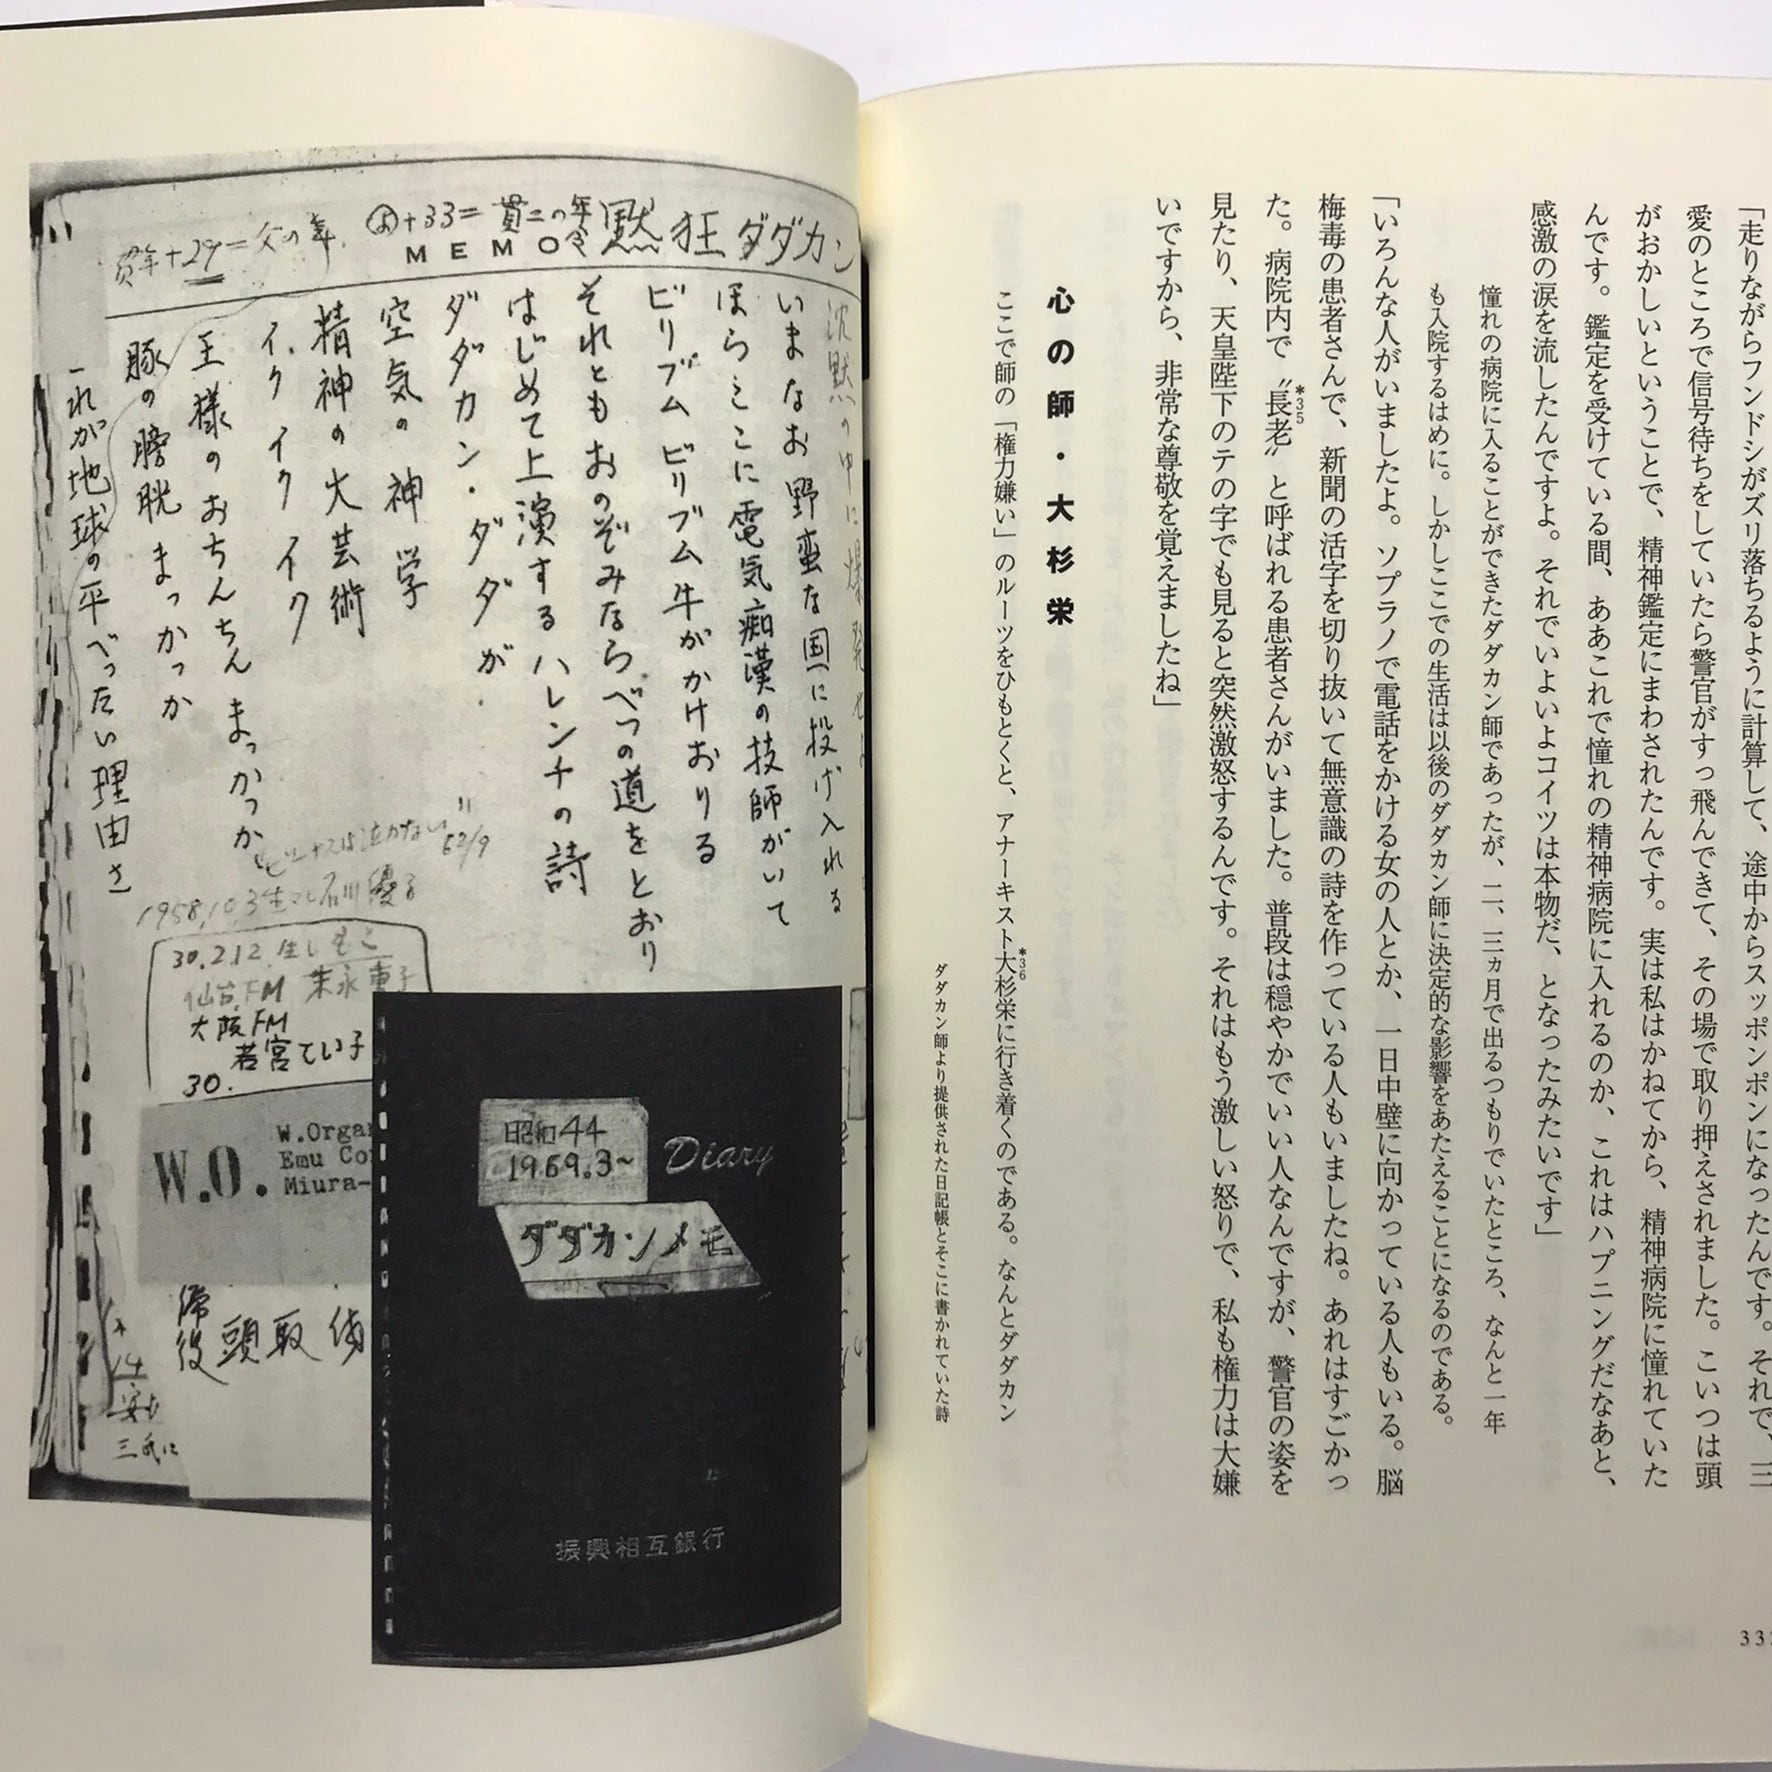 「走りながらフンドシがズリ落ちるように計算して、途中からスッポンポンになったんです。それで、三
愛のところで信号待ちをしていたら警官がすっ飛んできて、その場で取り押えされました。こいつは頭
がおかしいということで、精神鑑定にまわされたんです。実は私はかねてから、精神病院に憧れていた
んです。鑑定を受けている間、ああこれで憧れの精神病院に入れるのか、これはハプニングだなあと、
感激の涙を流したんですよ。それでいよいよコイツは本物だ、となったみたいです」
憧れの病院に入ることができたダダカン師であったが、二、三ヵ月で出るつもりでいたところ、なんと一年
も入院するはめに。しかしここでの生活は以後のダダカン師に決定的な影響をあたえることになるのである。
「いろんな人がいましたよ。ソプラノで電話をかける女の人とか、一日中壁に向かっている人もいる。脳
梅毒の患者さんで、新聞の活字を切り抜いて無意識の詩を作っている人もいましたね。あれはすごかっ
た。病院内で〝長老〟と呼ばれる患者さんがいました。普段は穏やかでいい人なんですが、警官の姿を
*35
見たり、天皇陛下のテの字でも見ると突然激怒するんです。それはもう激しい怒りで、私も権力は大嫌
いですから、非常な尊敬を覚えましたね」
心の師・大杉栄
ここで師の「権力嫌い」のルーツをひもとくと、アナーキスト大杉栄に行き着くのである。なんとダダカン
*36
ダダカン師より提供された日記帳とそこに書かれていた詩
33
黙狂ダダカン
MEMO
+33=貫二の年令
+29=父の年
沈黙の中に爆発せよ
いまなお野蛮な国に投げ入れる
ほらここに電気痴漢の技師がいて
ビリブムビリブム牛がかけおりる
それともおのぞみならべつの道をとおり
はじめて上演するハレンチの詩
ダダカン・ダダが
空気の神学
精神の大芸術
イクイクイク
王様のおちんちんまっかっか
豚の膀胱まっかっか
これが地球の平べったい理由さ
"ビーナスは泣かない"
62/9
1958.10.3生マレ石川優子
30.2.12.生しもこ
仙台FM
大阪FM
若宮てい子
30.
W.O.
W.Orga
Emu Co
Miura-
頭取
三氏に
昭和44
1969.3~
Diary
ダダカンメモ
振興相互銀行